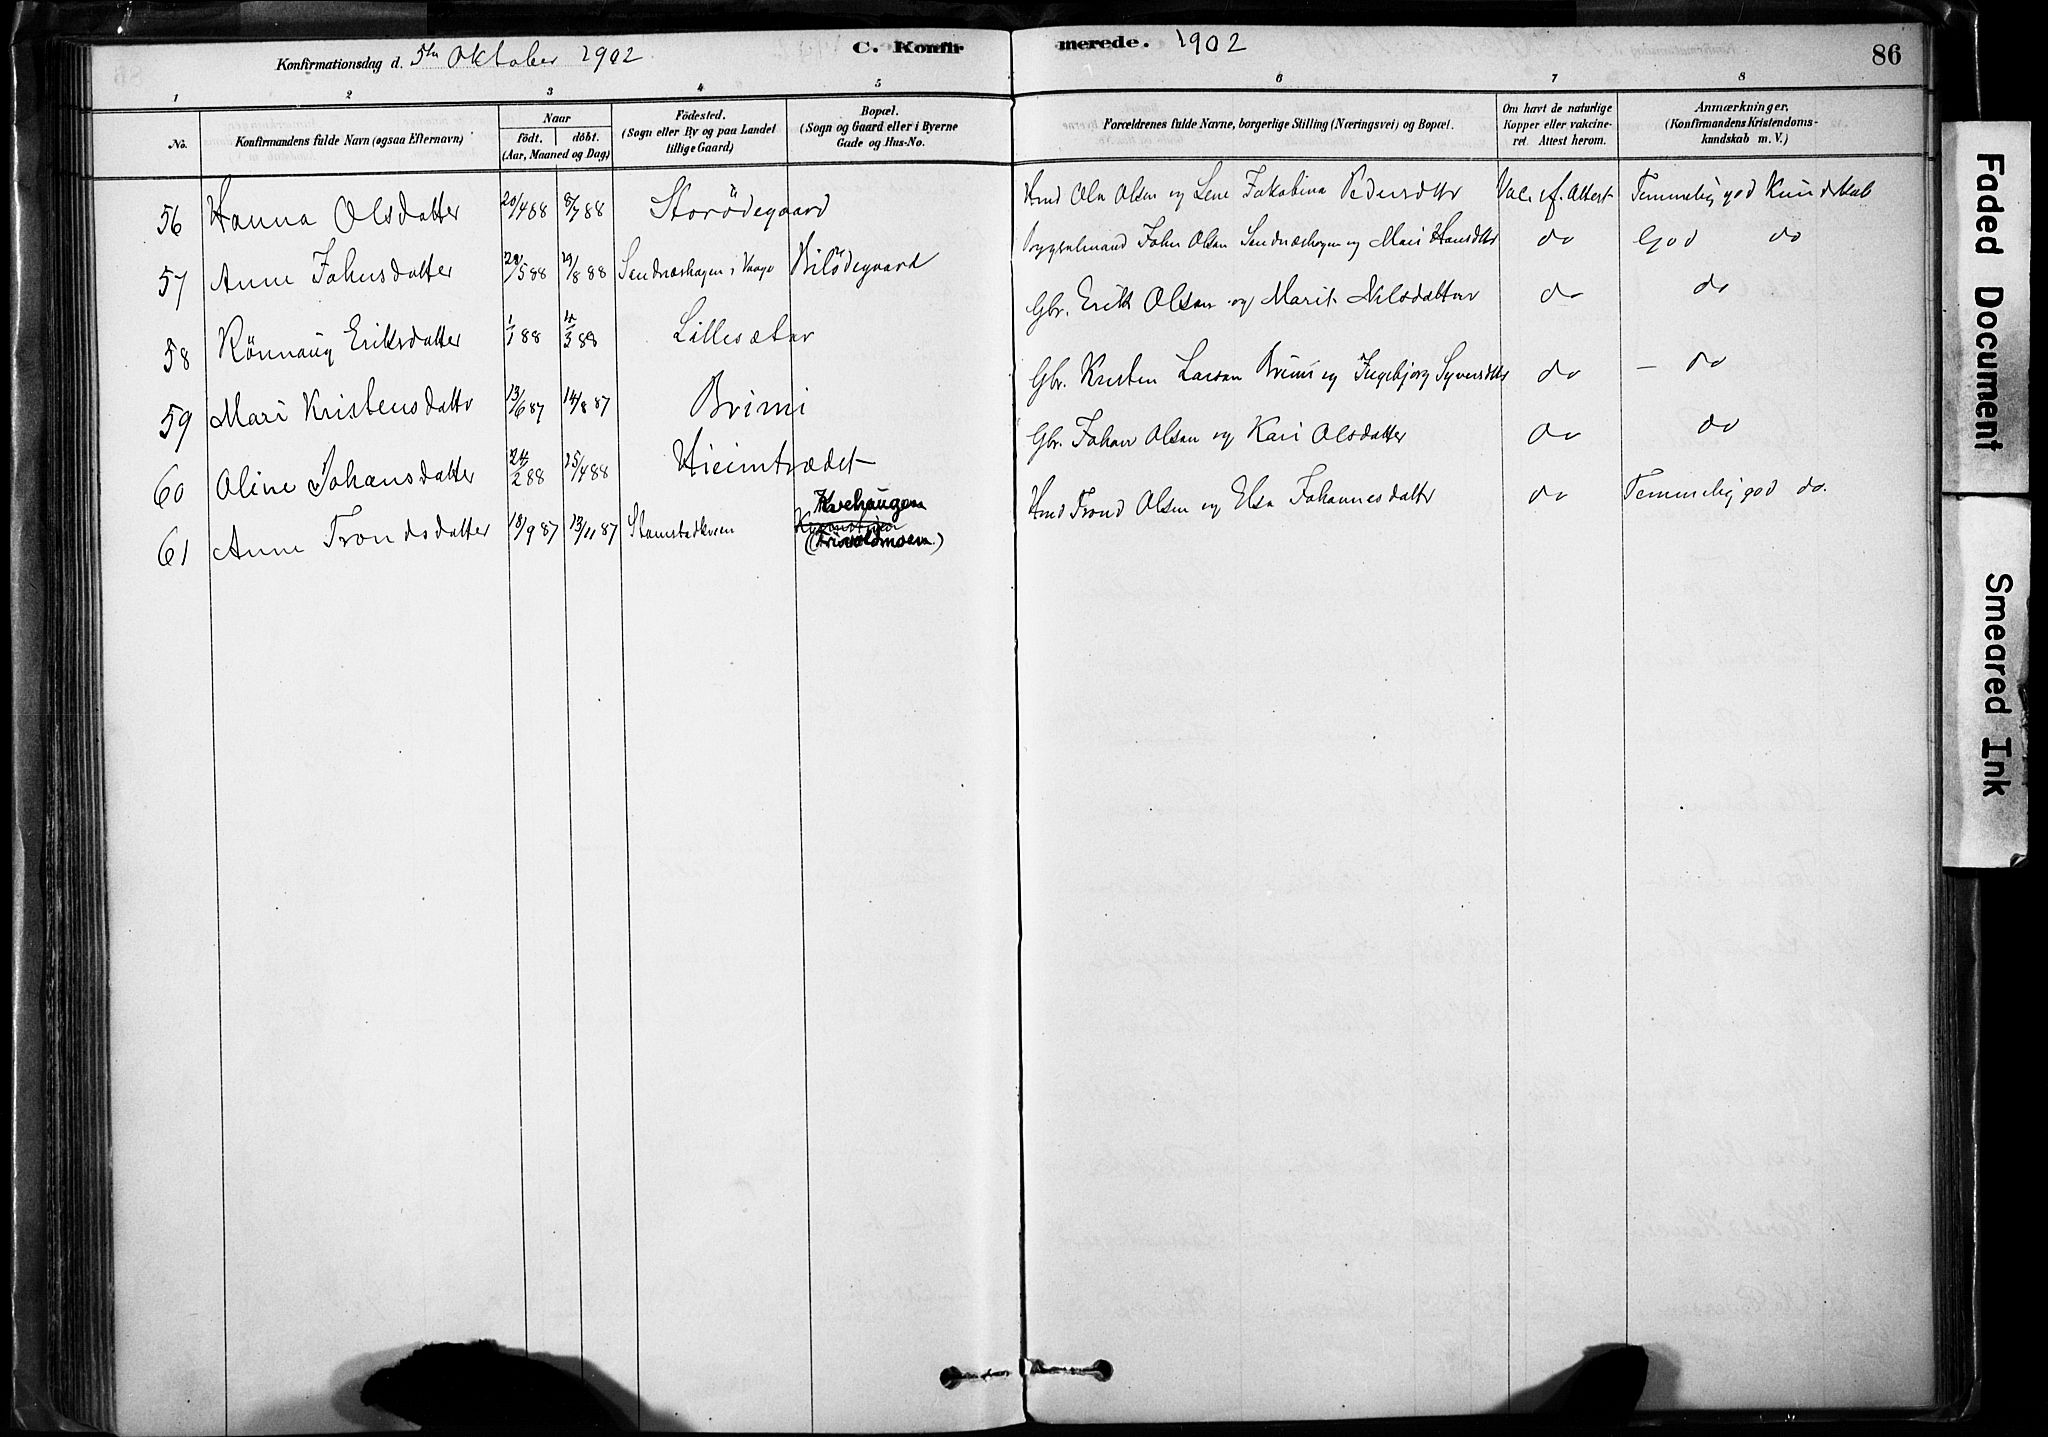 Konfirmationsdag d. 5te Oktober 1902
C. Konfirmerede. 1902
86
1 2 3 4 5 6 7 8
No.
Konfirmandens fulde Navn (ogsaa Efternavn)
Naar
födt. döbt.
(Aar, Maaned og Dag)
Födested.
(Sogn eller By og paa Landet
tillige Gaard)
Bopæl.
(Sogn og Gaard eller i Byerne
Gade og Hus-No.
Forældrenes fulde Navne, borgerlige Stilling (Næringsvei) og Bopæl.
Om havt de naturlige
Kopper eller vakcine-
ret. Attest herom.
Anmærkninger.
(Konfirmandens Kristendoms-
kundskab m. V.)
56 Hanna Olsdatter 20/4 88 8/7 88 Storödegaard Hmd Ola Olsen og Lene Jakobina Pedersdtr Vac. if. Attest Temmelig god Kundskab
57 Anne Johnsdatter /5 88 19/8 88 Sendneshagen i Vaage Bilödegaard John Olsen Sendneshagen og Mari Hansdtr do God do
58 Rönnaug Eriksdatter 1/1 88 4/3 88 Lillesæter Gbr. Erik Olsen og Marit Nilsdatter do do
59 Mari Kristensdatter 13/6 87 14/8 87 Brimi Gbr. Kristen Larsen Brimi og Ingebjorg Syversdtr do – do
60 Oline Johansdatter 24/2 88 15/4 88 Gbr. Johan Olsen og Kari Olsdatter do do
61 Anne Trondsdatter 18/9 87 13/11 87 Kvehaugen Hmd Trond Olsen og Elsa Johannesdatter do Temmelig god do.
Faded Document
Smeared Ink